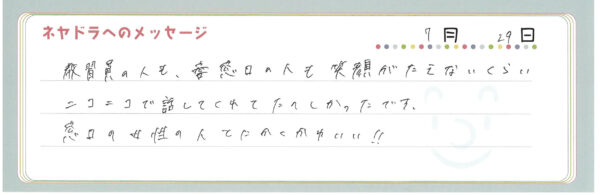 ネヤドラへのメッセージ
7月 29日
教習員の人も、窓口の人も笑顔がたえないくらい
ニコニコで話してくれてたのしかったです。
窓口の女性の人てにかくかわいい!!